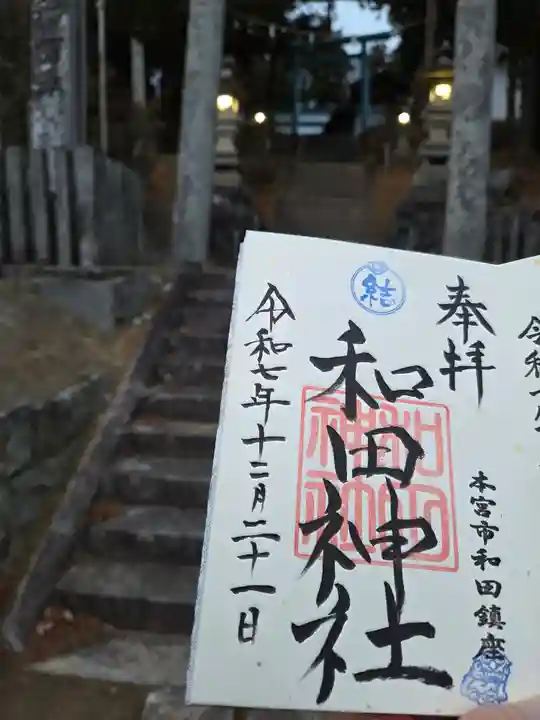 奉拝
本宮市和田鎮座
和田神社
和田
神社
結
令和七年十二月二十一日